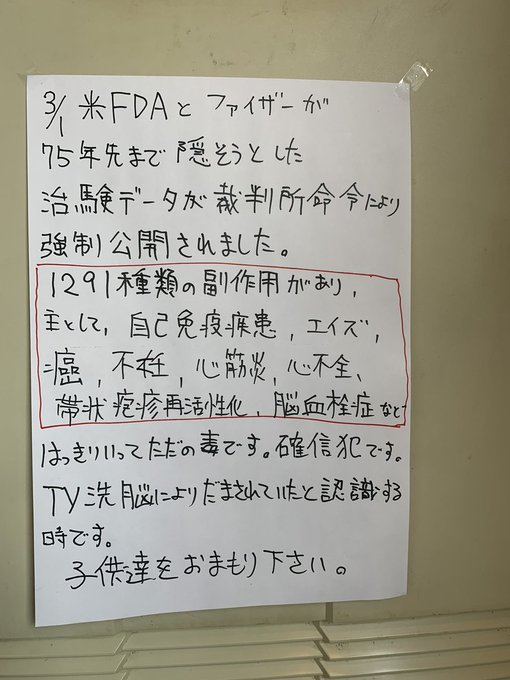 3/1 米FDAと ファイザーが
75年先まで隠そうとした
治験データが裁判所命令により
強制公開されました。
1291種類の副作用があり、
主として、自己免疫疾患、エイズ、
癌、不妊、心筋炎、心不全、
帯状疱疹再活性化、脳血栓症など
はっきりいってただの毒です。確信犯です。
TV洗脳によりだまされていたと認識する
時です。
子供達をおまもり下さい。